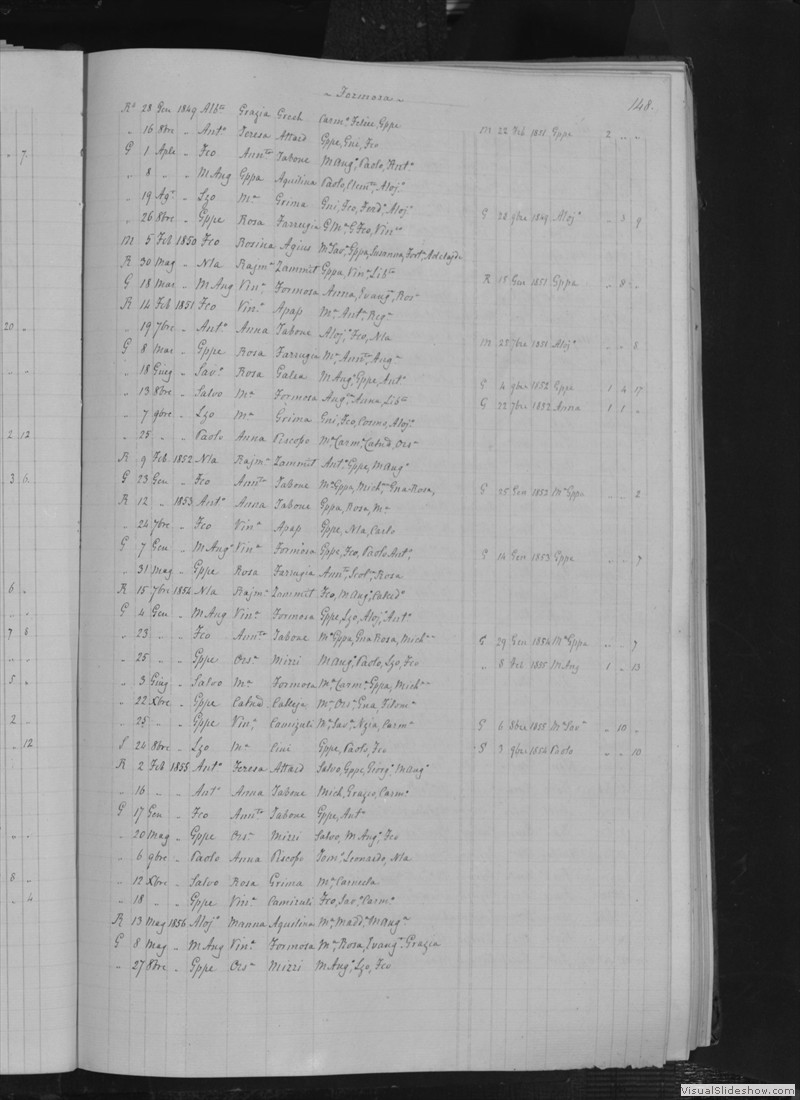 7.
20 .
2 12
3 6
6 .
7 6
5 .
2 .
. 12
8 .
. 4
~ Formosa ~
148.
Rº 28 Gen 1849 Albᵐ Grazia Grech Carmª Felice, Gppe
" 16 8bre .. Antº Teresa Attard Gppe, Gni, Fco M 22 Feb 1851 Gppa 2 .. ..
G 1 Aple .. Fco Annᵗᵃ Tabone M Angª Paolo, Antº
" 8 " .. M Ang Gppa Aquilina Paolo, Clemᵗᵉ, Alojª
" 19 Agº .. Lzo Mª Grima Gni, Fco, Ferdº, Alojº
" 26 8bre .. Gppe Rosa Farrugia G Mª G Fco, Vinº G 28 9bre 1849 Alojº .. 3 9
M 5 Feb 1850 Fco Rosina Agius Mª Savª, Gppa, Susanna, Fortª, Adelaide
R 30 Mag .. Nla Rajmª Zammit Gppa, Vinª Libᵐ
G 18 Mar .. M Ang Vinª Formosa Anna, Evangª, Rosª R 15 Gen 1851 Gppa .. 8 ..
R 14 Feb 1851 Fco Vinª Apap Mª Antª Regª
" 19 7bre .. Antº Anna Tabone Alojº, Fco, Nla
G 8 Mar .. Gppe Rosa Farrugia Mª Annᵗᵃ, Angª M 22 7bre 1851 Alojº .. .. 8
" 18 Giug .. Savº Rosa Galea M Angª, Gppe, Antº
" 13 8bre .. Salvo Mª Formosa Angª, Anna, Libᵐ G 4 9bre 1852 Gppe 1 4 17
" 7 9bre .. Lzo Mª Grima Gni, Fco, Cosmo, Alojº G 22 7bre 1852 Anna 1 1 ..
" 25 " .. Paolo Anna Piscopo Mª Carmª, Catnᵈ, Orsª
R 9 Feb 1852 Nla Rajmª Zammit Antº, Gppe, M Angª
G 23 Gen .. Fco Annᵗᵃ Tabone Mª Gppa, Michª, Gna Rosa,
R 12 .. 1853 Antº Anna Tabone Gppa, Rosa, Mª G 25 Gen 1853 Mª Gppa .. .. 2
" 24 7bre .. Fco Vinª Apap Gppe, Nla, Carlo
G 7 Gen .. M Angº Vinª Formosa Gppe, Fco, Paolo Antº
" 31 Mag .. Gppe Rosa Farrugia Annᵗᵃ, Scolª, Rosa G 14 Gen 1853 Gppe .. .. 7
R 15 7bre 1854 Nla Rajmª Zammit Fco, M Angº, Calcedº
G 4 Gen .. M Ang Vinª Formosa Gppe, Lzo, Alojº, Antº
" 23 .. .. Fco Annᵗᵃ Tabone Mª Gppa, Gna Rosa, Michª G 29 Gen 1854 Mª Gppa .. .. 7
" 25 .. .. Gppe Orsª Mizzi M Angº, Paolo, Lzo, Fco " 8 Feb 1855 M Ang 1 .. 13
" 3 Giug .. Salvo Mª Formosa Mª Carmª, Gppa, Michª
" 22 Xbre .. Gppe Catnᵈ Calleja Mª Orsª, Gna, Filomª
" 25 " .. Gppe Vinª Camizuli Mª Savª, Nzia, Carmª G 6 8bre 1855 Mª Savª .. 10 ..
S 24 8bre .. Lzo Mª Cini Gppe, Paolo, Fco S 3 9bre 1854 Paolo .. .. 10
R 2 Feb 1855 Antº Teresa Attard Salvo, Gppe, Giorgº, M Angº
" 16 .. .. Antº Anna Tabone Mich, Grazio, Carmº
G 17 Gen .. Fco Annᵗᵃ Tabone Gppe, Antº
" 20 Mag .. Gppe Orsª Mizzi Salvo, M Angº, Fco
" 6 9bre .. Paolo Anna Piscopo Tomº, Leonardo, Nla
" 12 Xbre .. Salvo Rosa Grima Mª Carmela
" 18 " .. Gppe Vinª Camizuli Fco, Savº, Carmº
R 13 Mag 1856 Alojº Marina Aquilina Mª, Madᵈ, M Angª
G 8 Mag .. M Ang Vinª Formosa Mª, Rosa, Evangª, Grazia
" 27 8bre .. Gppe Orsª Mizzi M Angº, Lzo, Fco
VisualSlideshow.com